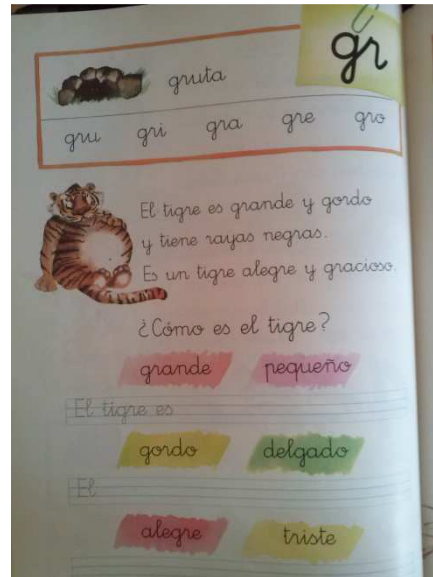 gr
gruta
gru gri gra gre gro
El tigre es grande y gordo
y tiene rayas negras.
Es un tigre alegre y gracioso.
¿Cómo es el tigre?
grande pequeño
El tigre es
gordo delgado
El
alegre triste